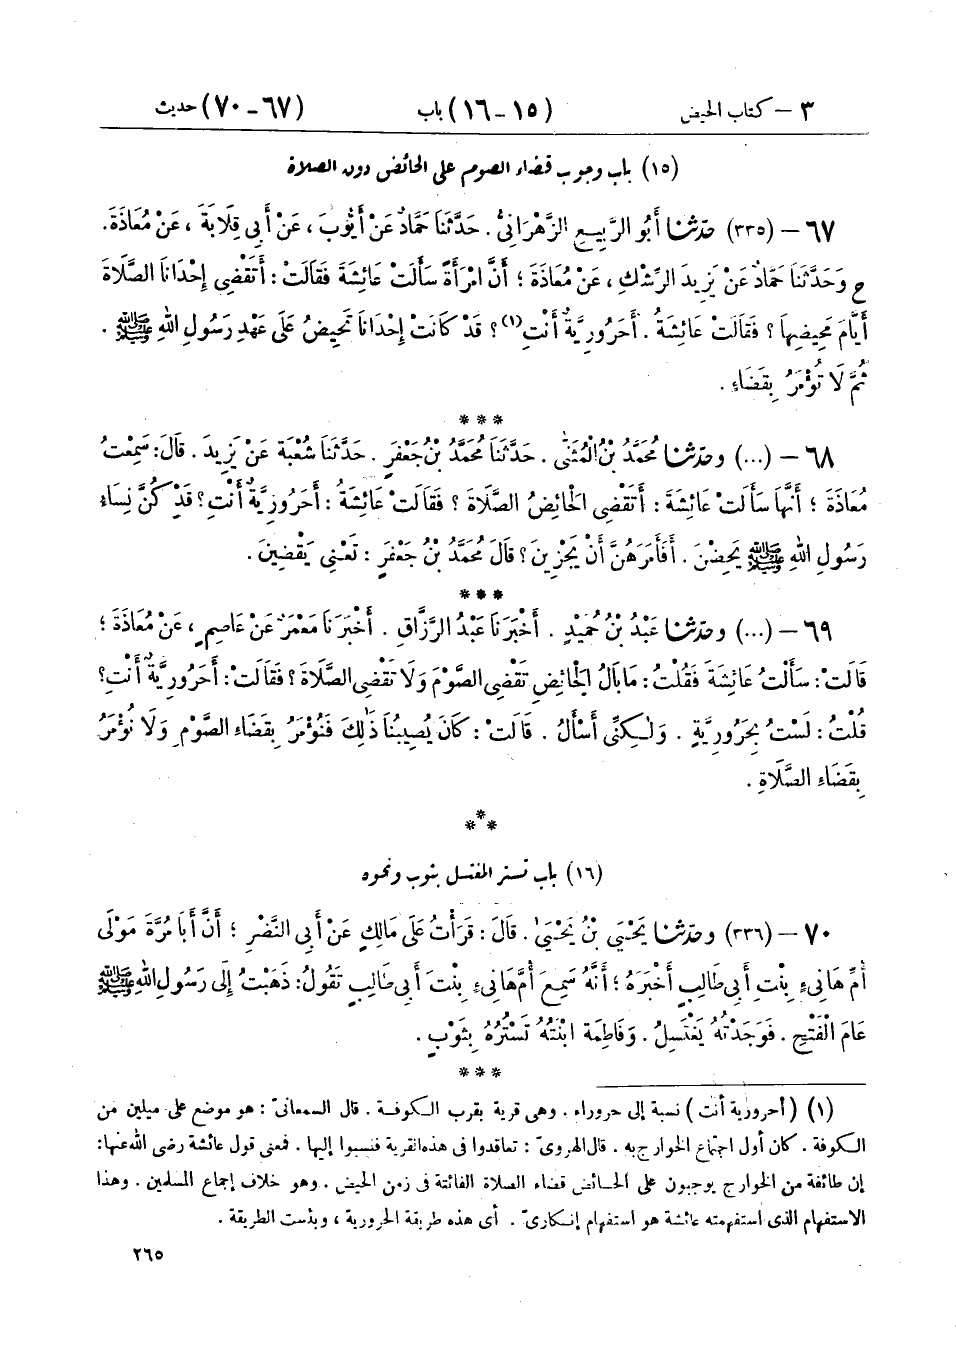 ٣ – كتاب الحيض (١٥ – ١٦) باب (٦٧ – ٧٠) حديث
(١٥) باب وجوب قضاء الصوم على الحائض دون الصلاة
٦٧ – (٣٣٥) حدّثنا أَبُو الرَّبِيعِ الزَّهْرَانِيُّ . حَدَّثَنَا حَمَّادٌ عَنْ أَيُّوبَ ، عَنْ أَبِي قِلَابَةَ ، عَنْ مُعَاذَةَ .
ح وَحَدَّثَنَا حَمَّادٌ عَنْ يَزِيدَ الرِّشْكِ ، عَنْ مُعَاذَةَ ؛ أَنَّ امْرَأَةً سَأَلَتْ عَائِشَةَ فَقَالَتْ : أَتَقْضِي إِحْدَانَا الصَّلَاةَ
أَيَّامَ مَحِيضِهَا ؟ فَقَالَتْ عَائِشَةُ . أَحَرُورِيَّةٌ أَنْتِ(١) ؟ قَدْ كَانَتْ إِحْدَانَا تَحِيضُ عَلَى عَهْدِ رَسُولِ اللهِ ﷺ .
ثُمَّ لَا تُؤْمَرُ بِقَضَاءٍ .
***
٦٨ – (...) وحدّثنا مُحَمَّدُ بْنُ الْمُثَنَّى . حَدَّثَنَا مُحَمَّدُ بْنُ جَعْفَرٍ . حَدَّثَنَا شُعْبَةُ عَنْ يَزِيدَ . قَالَ : سَمِعْتُ
مُعَاذَةَ ؛ أَنَّهَا سَأَلَتْ عَائِشَةَ : أَتَقْضِي الْحَائِضُ الصَّلَاةَ ؟ فَقَالَتْ عَائِشَةُ : أَحَرُورِيَّةٌ أَنْتِ ؟ قَدْ كُنَّ نِسَاءُ
رَسُولِ اللهِ ﷺ يَحِضْنَ . أَفَأَمَرَهُنَّ أَنْ يَجْزِينَ ؟ قَالَ مُحَمَّدُ بْنُ جَعْفَرٍ : تَعْنِي يَقْضِينَ .
***
٦٩ – (...) وحدّثنا عَبْدُ بْنُ حُمَيْدٍ . أَخْبَرَنَا عَبْدُ الرَّزَّاقِ . أَخْبَرَنَا مَعْمَرٌ عَنْ عَاصِمٍ ، عَنْ مُعَاذَةَ ؛
قَالَتْ : سَأَلْتُ عَائِشَةَ فَقُلْتُ : مَا بَالُ الْحَائِضِ تَقْضِي الصَّوْمَ وَلَا تَقْضِي الصَّلَاةَ ؟ فَقَالَتْ : أَحَرُورِيَّةٌ أَنْتِ ؟
قُلْتُ : لَسْتُ بِحَرُورِيَّةٍ . وَلَكِنِّي أَسْأَلُ . قَالَتْ : كَانَ يُصِيبُنَا ذَلِكَ فَنُؤْمَرُ بِقَضَاءِ الصَّوْمِ وَلَا نُؤْمَرُ
بِقَضَاءِ الصَّلَاةِ .
***
(١٦) باب تستر المغتسل بثوب ونحوه
٧٠ – (٣٣٦) وحدّثنا يَحْيَى بْنُ يَحْيَى . قَالَ : قَرَأْتُ عَلَى مَالِكٍ عَنْ أَبِي النَّضْرِ ؛ أَنَّ أَبَا مُرَّةَ مَوْلَى
أُمِّ هَانِيءٍ بِنْتِ أَبِي طَالِبٍ أَخْبَرَهُ ؛ أَنَّهُ سَمِعَ أُمَّ هَانِيءٍ بِنْتَ أَبِي طَالِبٍ تَقُولُ : ذَهَبْتُ إِلَى رَسُولِ اللهِ ﷺ
عَامَ الْفَتْحِ . فَوَجَدْتُهُ يَغْتَسِلُ . وَفَاطِمَةُ ابْنَتُهُ تَسْتُرُهُ بِثَوْبٍ .
***
(١) (أحرورية أنت) نسبة إلى حروراء . وهي قرية بقرب الكوفة . قال السمعانىّ : هو موضع على ميلين من
الكوفة . كان أول اجتماع الخوارج به . قال الهروىّ : تعاقدوا فى هذه القرية فنسبوا إليها . فمعنى قول عائشة رضى الله عنها :
إن طائفة من الخوارج يوجبون على الحائض قضاء الصلاة الفائتة فى زمن الحيض . وهو خلاف إجماع المسلمين . وهذا
الاستفهام الذى استفهمته عائشة هو استفهام إنكارىّ . أى هذه طريقة الحرورية ، وبئست الطريقة .
٢٦٥